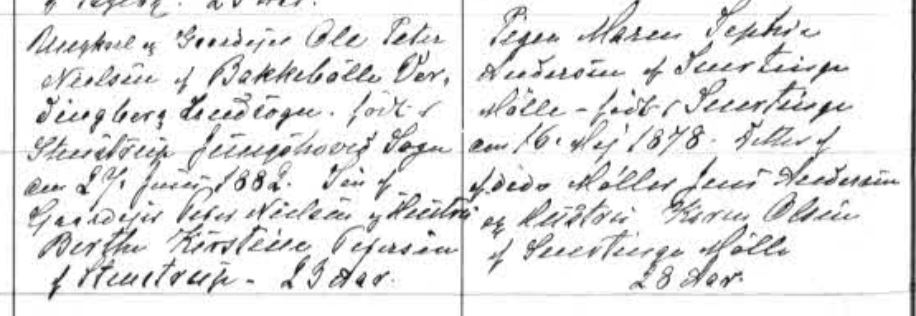 Ungkarl og Gaardejer Ole Peter
Nielsen af Bakkebölle Vor-
dingborg Landsogn. født i
Stenstrup Jungshoved Sogn
den 27. Juni 1882. Søn af
Gaardejer Peter Nielsen og Hustru
Berthe Kirstine Petersen
af Stenstrup - 23 Aar.
Pigen Maren Sophie
Andersen af Snertinge
Mölle - født i Snertinge
den 16. Maj 1878. Datter af
afdøde Møller Jens Andersen
og Hustru Karen Olsen
af Snertinge Mölle
28 Aar.